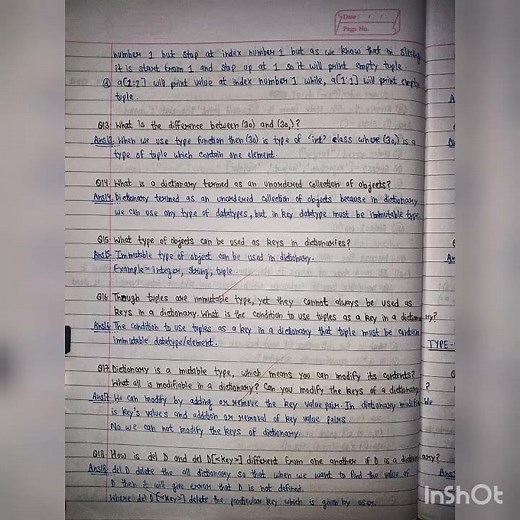 Date: / /
Page No.
number 1 but stop at index number 1 but as we know that in slicing
it is start from 1 and stop up at 1 so it will print empty tuple.
④ a[1:2] will print value at index number 1 while, a[1:1] will print empty
tuple.
Q13 What is the difference between (30) and (30,)?
Ans13 When we use type function then (30) is type of 'int' class where (30,) is a
type of tuple which contain one element.
Q14 What is a dictionary termed as an unordered collection of objects?
Ans14 Dictionary termed as an unordered collection of objects because in dictionary
we can use any type of datatypes, but in key datatype must be immutable type.
Q15 What type of objects can be used as keys in dictionaries?
Ans15 Immutable type of object can be used in dictionary.
Example = integer, string, tuple
Q16 Though tuples are immutable type, yet they cannot always be used as
keys in a dictionary. What is the condition to use tuples as a key in a dictionary?
Ans16 The condition to use tuples as a key in a dictionary that tuple must be contain
immutable datatype/element.
TYPE-
Q17 Dictionary is a mutable type, which means you can modify its contents?
What all is modifiable in a dictionary? Can you modify the keys of a dictionary?
Ans17 We can modify by adding or remove the key value pair. In dictionary modifible
is key's values and addition or removal of key value pairs.
No we can not modify the keys of dictionary.
Q18 How is del D and del D[<key>] different from one another if D is a dictionary?
Ans18 del D delete the all dictionary so that when we want to find the value of
D then it will give error that D is not defined.
Where del D[<key>] delete the particular key which is given by user.
InShOt